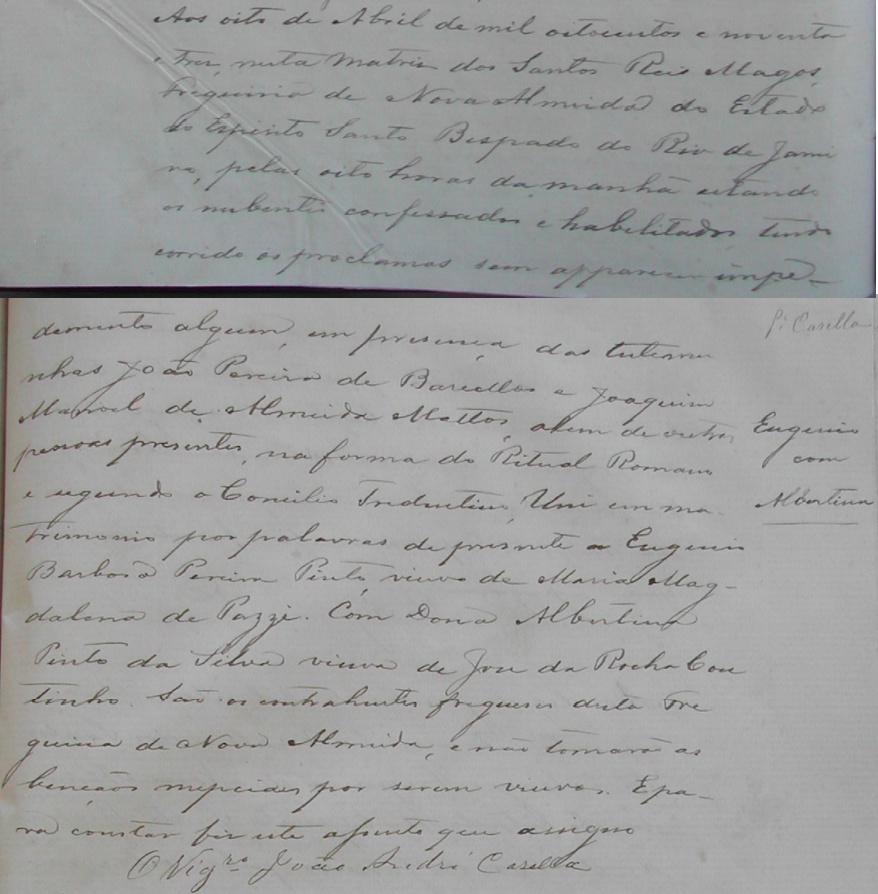 Aos oito de Abril de mil oitocentos e noventa
e Tres, nesta Matriz dos Santos Reis Magos,
Freguesia de Nova Almeida do Estado
do Espirito Santo Bispado do Rio de Janei
ro, pelas oito horas da manhã estando
os nubentes confessados e habilitados tendo
corrido os proclamas sem apparecer impe-
dimento algum, em presença das testemu
nhas João Pereira de Barcellos e Joaquim
Manoel de Almeida Mattos, alem de outras
pessoas presentes, na forma do Ritual Romano
e segundo o Concilio Tredentino, Uni em ma-
trimonio por palavras de presente a Eugenio
Barbosa Pereira Pinto, viuvo de Maria Mag-
dalena de Pazzi. Com Dona Albertina
Pinto da Silva viuva de Jose da Rocha Cou
tinho. São os contrahentes fregueses desta Fre
guesia de Nova Almeida, e não tomarão as
bençãos nupciaes por serem viuvos. E pa-
ra constar fiz este assento que assigno
O Vigro. João André Casella
Pe. Casella
Eugenio
com
Albertina